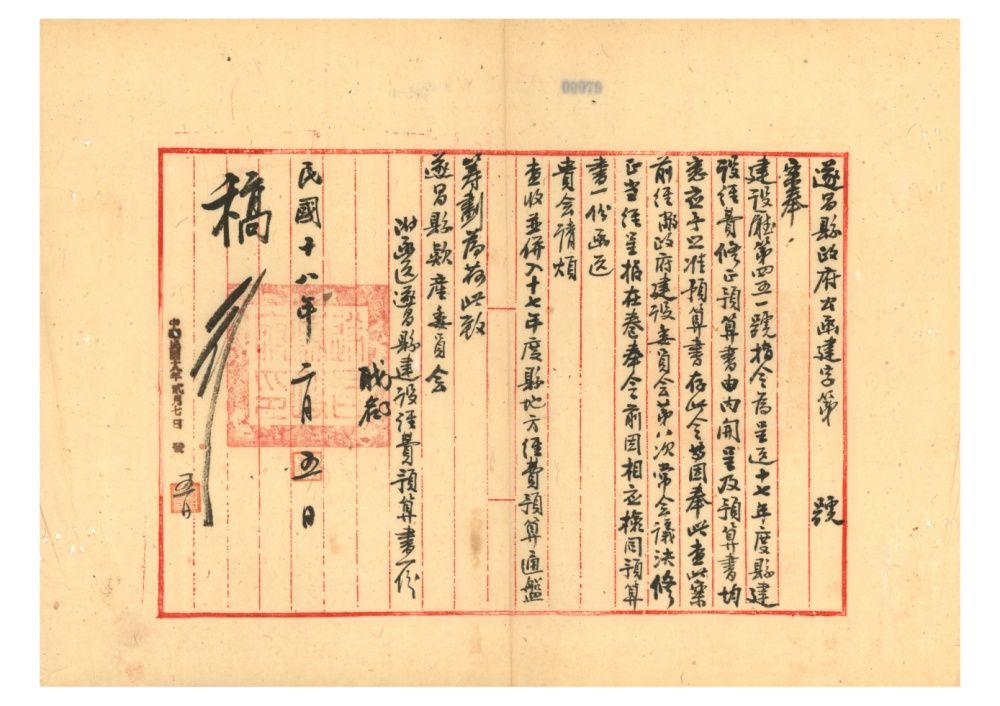 00079
遂昌縣政府公函建字第 號
案奉
建設廳第四五一號指令為呈送十七年度縣建
設經費修正預算書由內開呈及預算書均
悉應予照准預算書存此令等因奉此查此案
前經敝政府建設委員會第八次常會議決修
正當經呈报在卷奉令前因相应檢同預算
書一份函送
貴會請煩
查收並併入十七年度縣地方經費預算通盤
籌劃為荷此致
遂昌縣款產委員会
附函送遂昌縣建設經費預算書一份
民國十八年二月五日
稿
貳月七日 發
五日